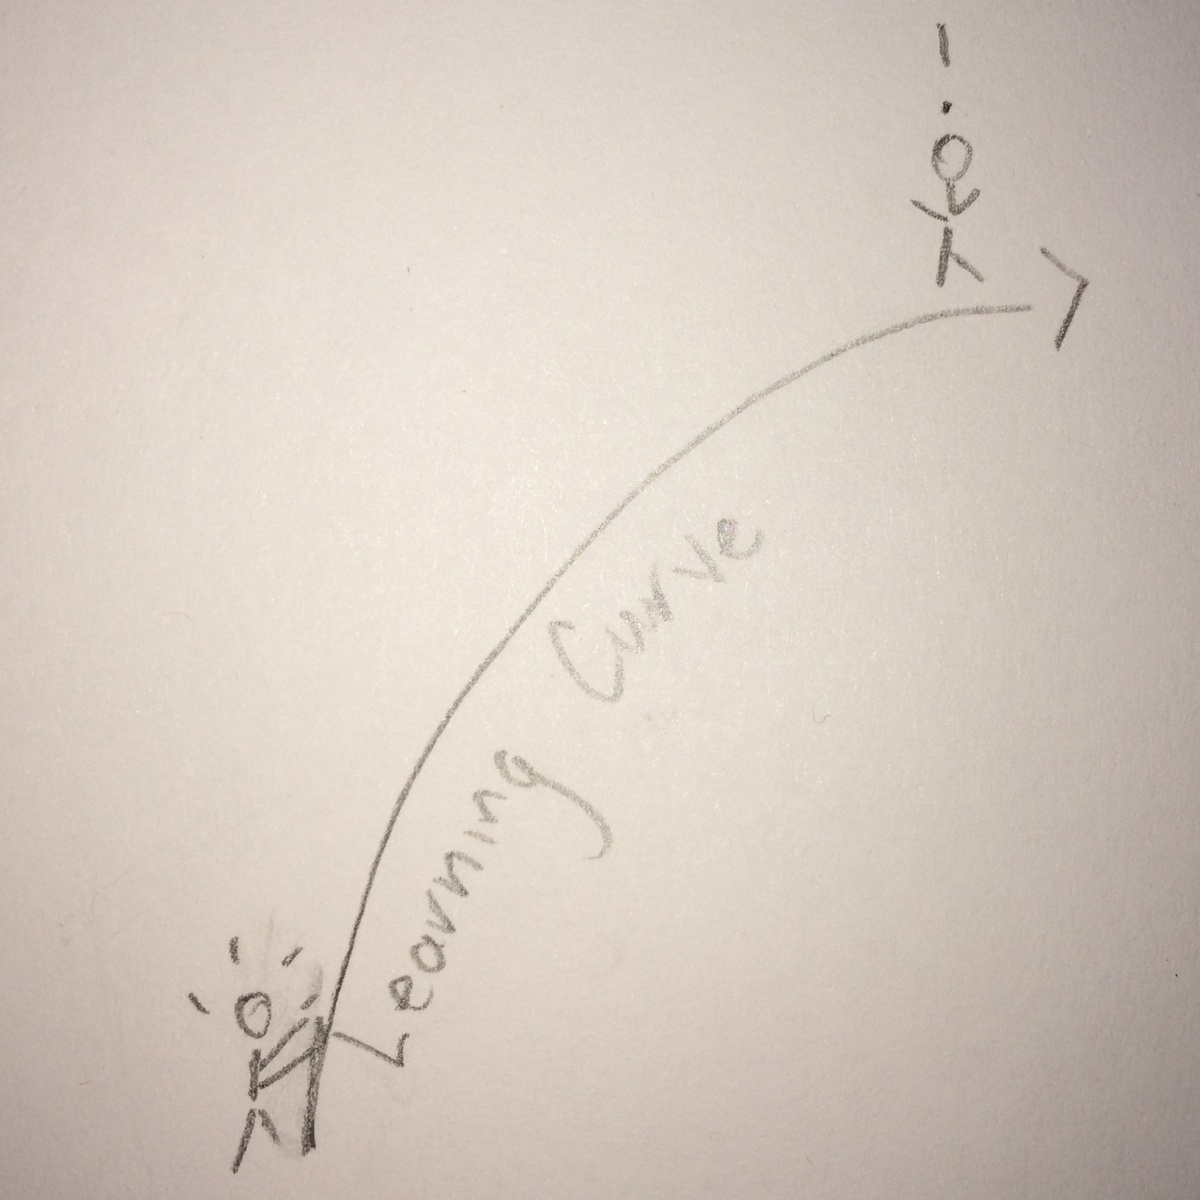 Learning Curve